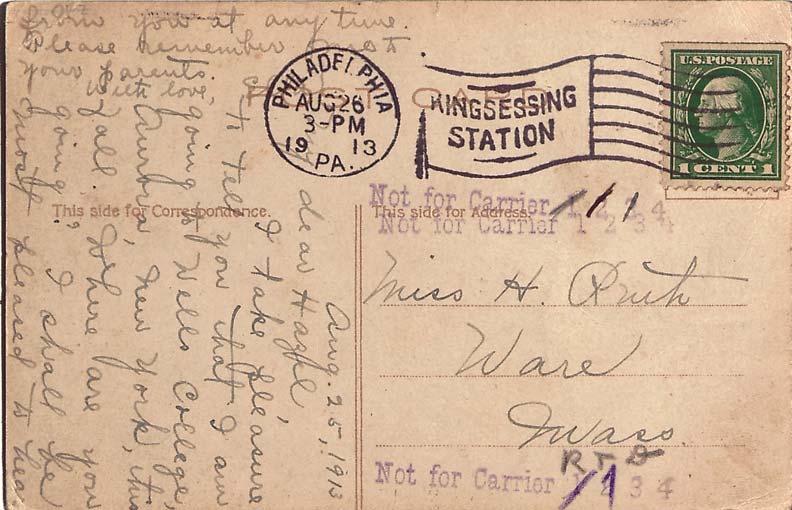 Aug. 25, 1913
Dear Hazel,
I take pleasure
to tell you that I am
going to Wells College,
Aurora, New York, this
fall. Where are you
going, I shall be
most pleased to hea
from you at any time.
Please remember to
your parents.
With love,
POST CARD
PHILADELPHIA
AUG 26
3-PM
1913
PA.
KINGSESSING
STATION
U.S. POSTAGE
1 CENT 1
This side for Correspondence.
This side for Address.
Not for Carrier 1 2 3 4
Not for Carrier 1 2 3 4
Miss H. Ruth
Ware
Mass.
Not for Carrier 1 2 3 4